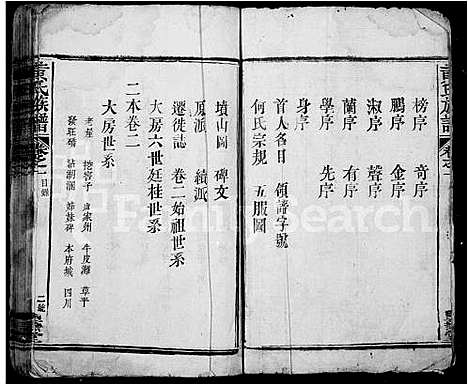 黄氏族譜
卷之一
榜序 奇序
鵬序 金序
淑序 聲序
蘭序 有序
學序 先序
身序
首人名目 領譜字號
何氏宗規 五服圖
墳山圖 碑文
原派 續派
遷徙誌 卷二始祖世系
大房六世廷桂世系
二本卷二
大房世系
老屋 按察子 盧家州 牛皮灘 草平
發旺磅 姊妹碑 本府城 四川
黄氏族譜
卷之一
目錄
二
FamilySearch